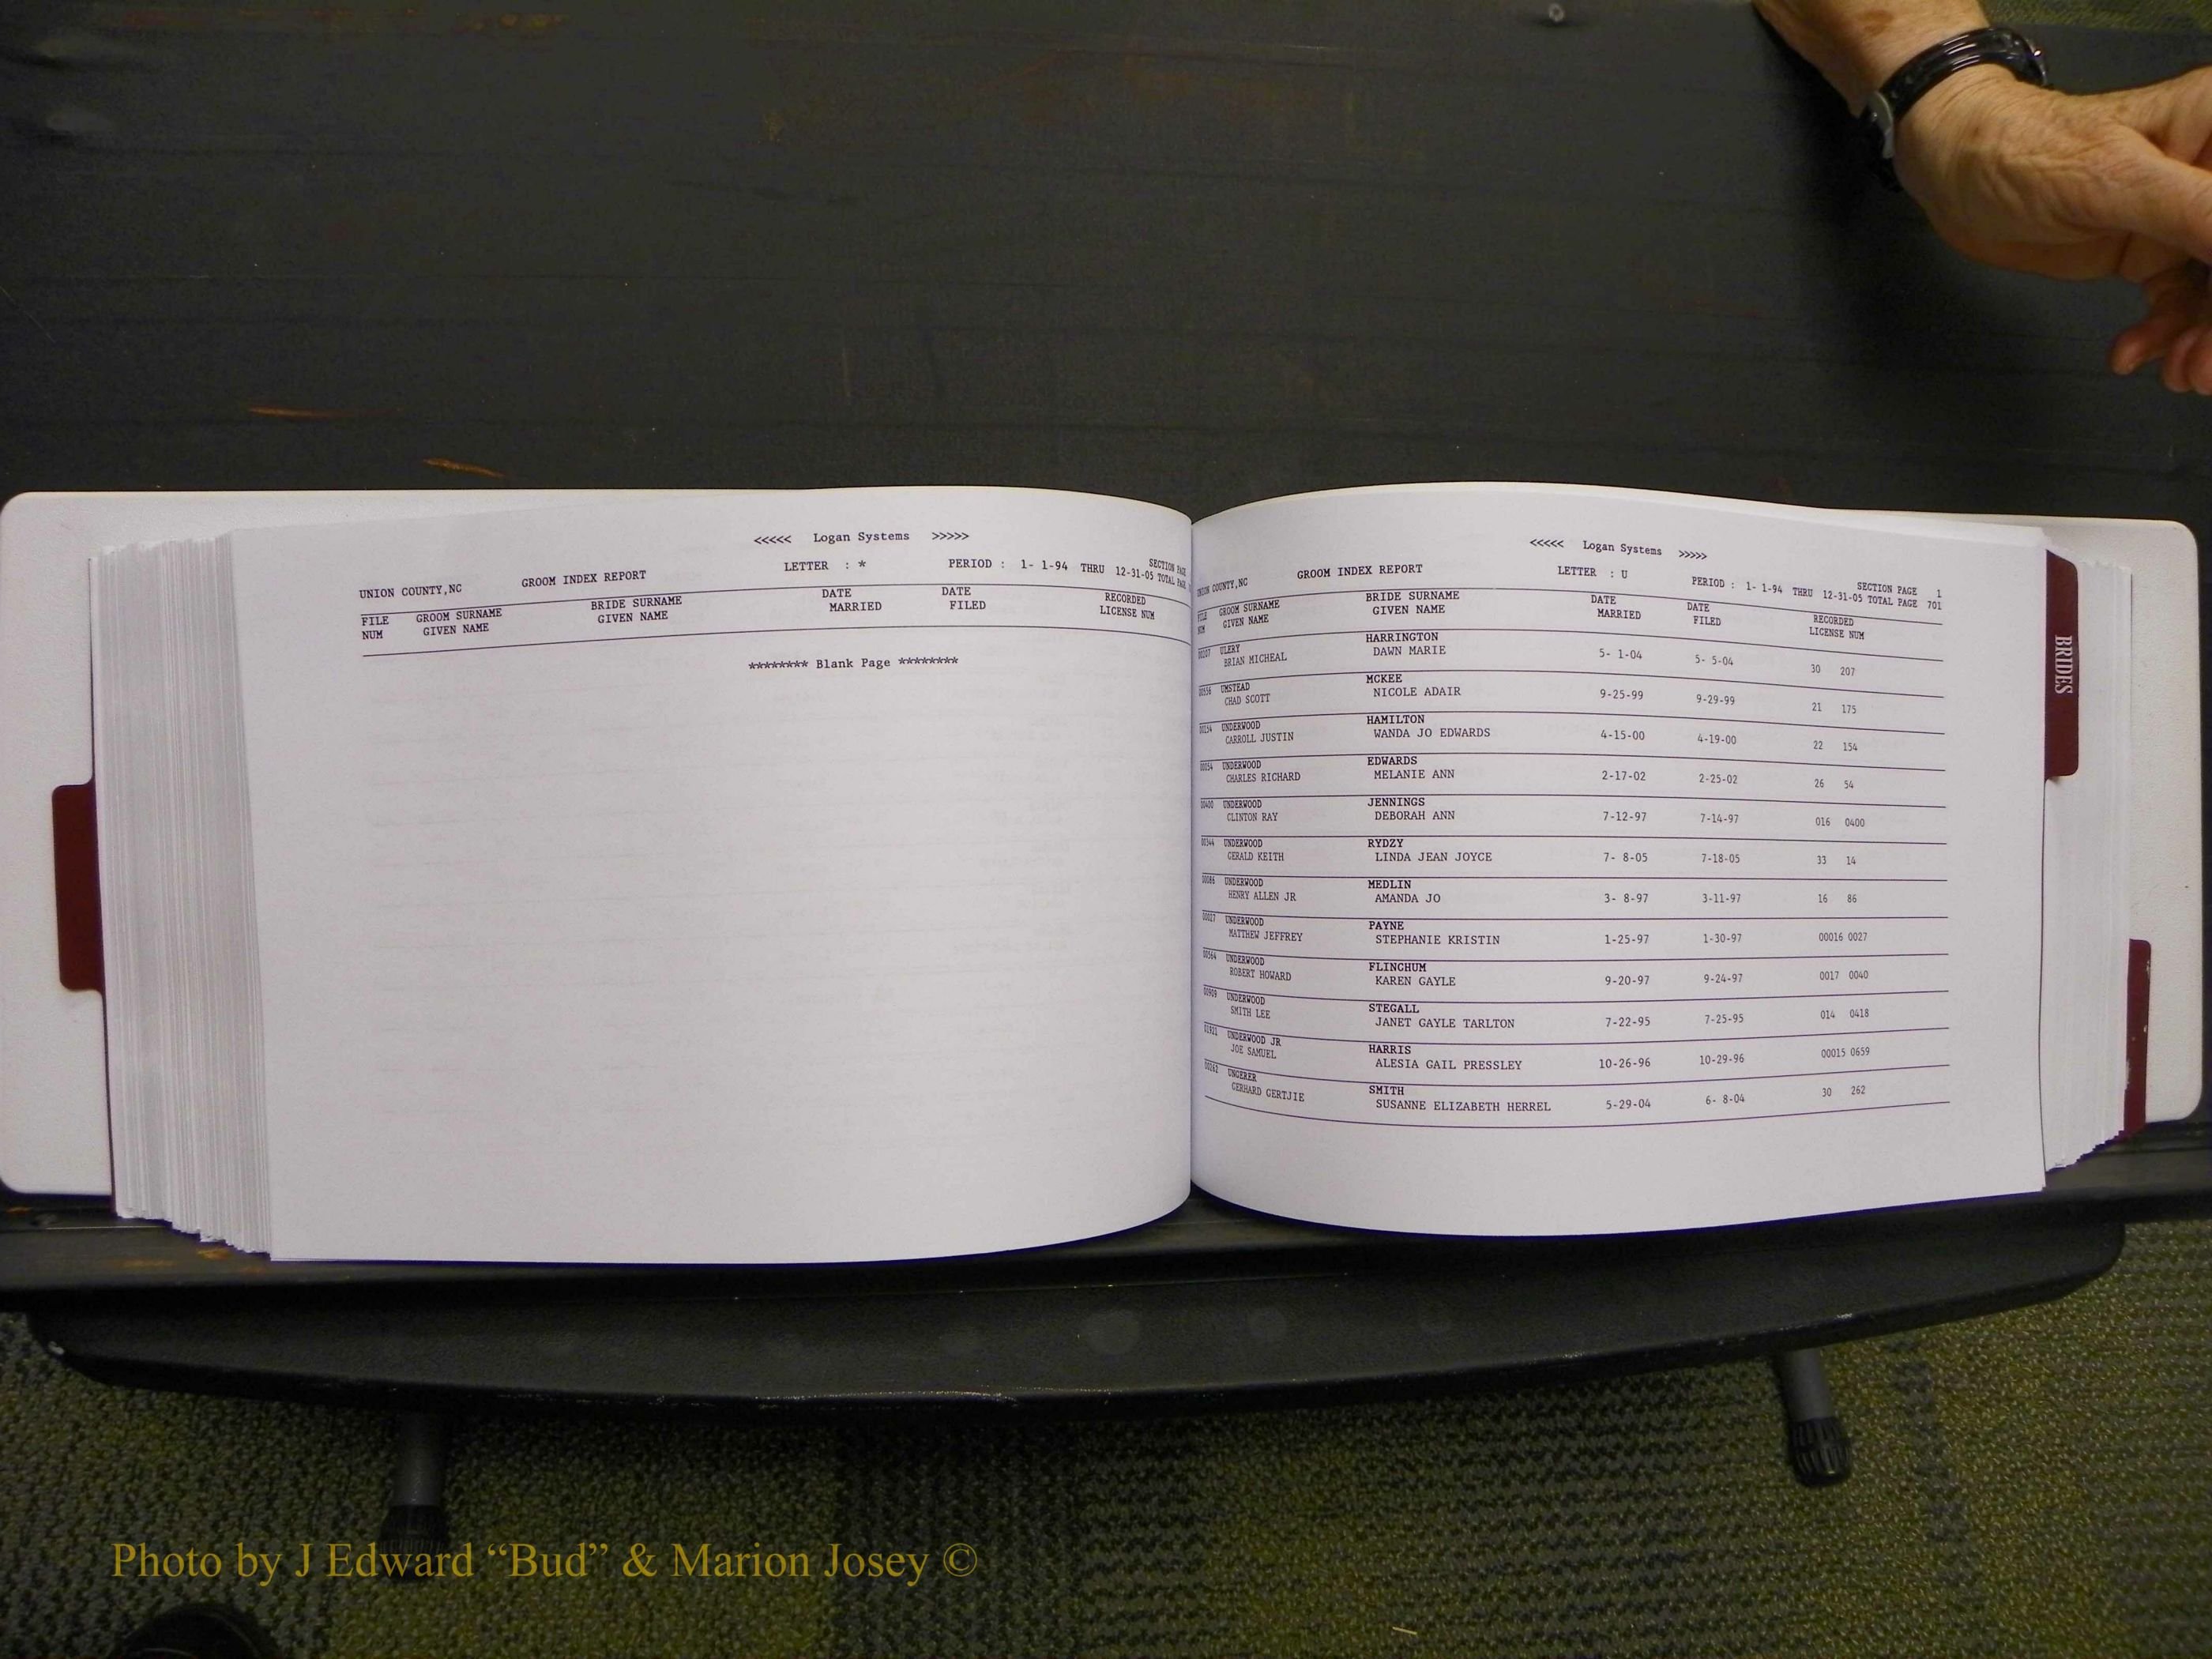 <<<<< Logan Systems >>>>>
UNION COUNTY,NC GROOM INDEX REPORT LETTER : * PERIOD : 1- 1-94 THRU 12-31-05 TOTAL PAGE
SECTION PAGE
FILE GROOM SURNAME BRIDE SURNAME DATE DATE RECORDED
NUM GIVEN NAME GIVEN NAME MARRIED FILED LICENSE NUM
******** Blank Page ********
<<<<< Logan Systems >>>>>
UNION COUNTY,NC GROOM INDEX REPORT LETTER : U PERIOD : 1- 1-94 THRU 12-31-05 TOTAL PAGE 701
SECTION PAGE 1
FILE GROOM SURNAME BRIDE SURNAME DATE DATE RECORDED
NUM GIVEN NAME GIVEN NAME MARRIED FILED LICENSE NUM
00207 ULERY HARRINGTON
BRIAN MICHEAL DAWN MARIE 5- 1-04 5- 5-04 30 207
00556 UMSTEAD MCKEE
CHAD SCOTT NICOLE ADAIR 9-25-99 9-29-99 21 175
00154 UNDERWOOD HAMILTON
CARROLL JUSTIN WANDA JO EDWARDS 4-15-00 4-19-00 22 154
00054 UNDERWOOD EDWARDS
CHARLES RICHARD MELANIE ANN 2-17-02 2-25-02 26 54
00400 UNDERWOOD JENNINGS
CLINTON RAY DEBORAH ANN 7-12-97 7-14-97 016 0400
00344 UNDERWOOD RYDZY
GERALD KEITH LINDA JEAN JOYCE 7- 8-05 7-18-05 33 14
00086 UNDERWOOD MEDLIN
HENRY ALLEN JR AMANDA JO 3- 8-97 3-11-97 16 86
00027 UNDERWOOD PAYNE
MATTHEW JEFFREY STEPHANIE KRISTIN 1-25-97 1-30-97 00016 0027
00564 UNDERWOOD FLINCHUM
ROBERT HOWARD KAREN GAYLE 9-20-97 9-24-97 0017 0040
00909 UNDERWOOD STEGALL
SMITH LEE JANET GAYLE TARLTON 7-22-95 7-25-95 014 0418
01921 UNDERWOOD JR HARRIS
JOE SAMUEL ALESIA GAIL PRESSLEY 10-26-96 10-29-96 00015 0659
00262 UNGERER SMITH
GERHARD GERTJIE SUSANNE ELIZABETH HERREL 5-29-04 6- 8-04 30 262
BRIDES
Photo by J Edward “Bud” & Marion Josey ©